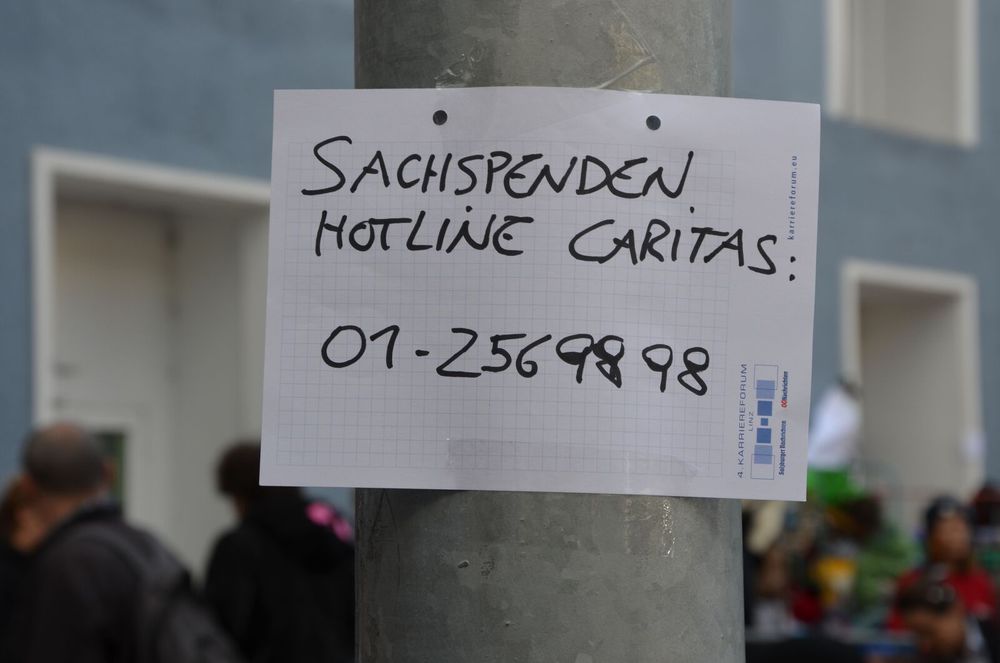 SACHSPENDEN
HOTLINE CARITAS:
01-2569898
karriereforum.eu
4. KARRIEREFORUM
LINZ
Salzburger Nachrichten
OÖNachrichten